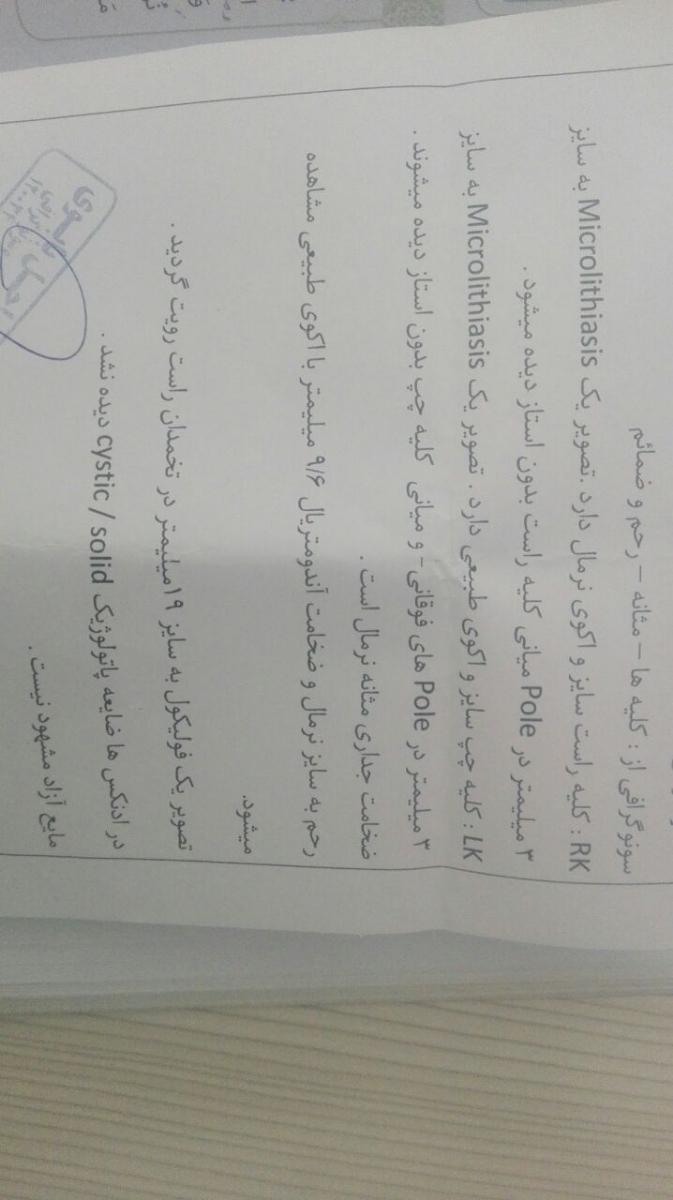 سونوگرافی از : کلیه ها – مثانه – رحم و ضمائم
RK : کلیه راست سایز و اکوی نرمال دارد .تصویر یک Microlithiasis به سایز
۳ میلیمتر در Pole میانی کلیه راست بدون استاز دیده میشود .
LK : کلیه چپ سایز و اکوی طبیعی دارد . تصویر یک Microlithiasis به سایز
۳ میلیمتر در Pole های فوقانی- و میانی کلیه چپ بدون استاز دیده میشوند .
ضخامت جداری مثانه نرمال است .
رحم به سایز نرمال و ضخامت آندومتریال ۹/۶ میلیمتر با اکوی طبیعی مشاهده
میشود.
تصویر یک فولیکول به سایز ۱۹میلیمتر در تخمدان راست رویت گردید .
در ادنکس ها ضایعه پاتولوژیک cystic / solid دیده نشد .
مایع آزاد مشهود نیست .